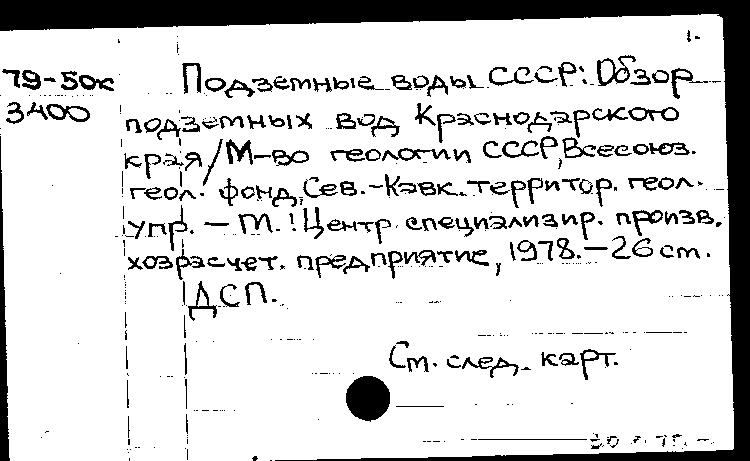 1.
79-50к Подземные воды СССР: Обзор
3400 подземных вод Краснодарского
края/М-во геологии СССР, Всесоюз.
геол. фонд, Сев.-Кавк. территор. геол.
упр. — М.: Центр. специализир. произв.
хозрасчет. предприятие, 1978. — 26 см.
ДСП.
См. след. карт.